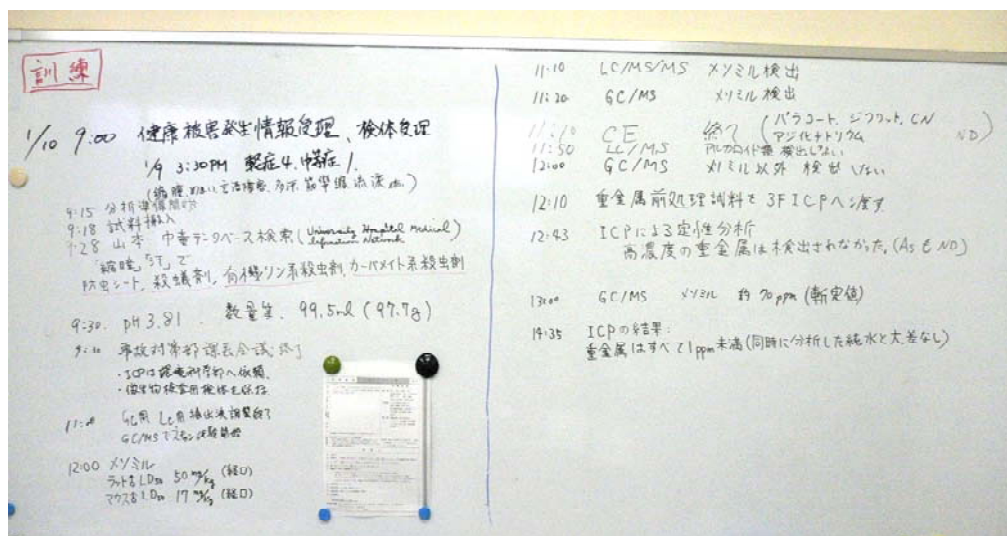 訓練
1/10 9:00 健康被害発生情報受理、検体受理
1/9 3:30PM 重症4、中等症1
(縮瞳、めまい、
9:15 分析準備開始
9:18 試料搬入
9:28 山本 中毒データベース検索(University Hospital Medical Information Network)
「縮瞳」などで
防虫シート、殺蟻剤、有機リン系殺虫剤、カーバメイト系殺虫剤
9:30. pH 3.81. 数量等、99.5ml (97.7g)
事故対策部課長会議 終了
・ICPは環境科学部へ依頼、
・微生物検査用検体を保存
GC用 LC用 抽出液調製終了
GC/MSでスキャン
12:00 メソミル
ラット LD50 50mg/kg (経口)
マウス LD50 17mg/kg (経口)
11:10 LC/MS/MS メソミル検出
11:20 GC/MS メソミル検出
CE 終了 (パラコート、ジクワット、CN
アジ化ナトリウム ND)
11:50 LC/MS アルカロイド類 検出しない
12:00 GC/MS メソミル以外 検出しない
12:10 重金属前処理試料を3F ICPへ渡す
12:43 ICPによる定性分析
高濃度の重金属は検出されなかった。(AsもND)
13:00 GC/MS メソミル 約70ppm (暫定値)
14:35 ICPの結果:
重金属はすべて1ppm未満(同時に分析した純水と大差なし)